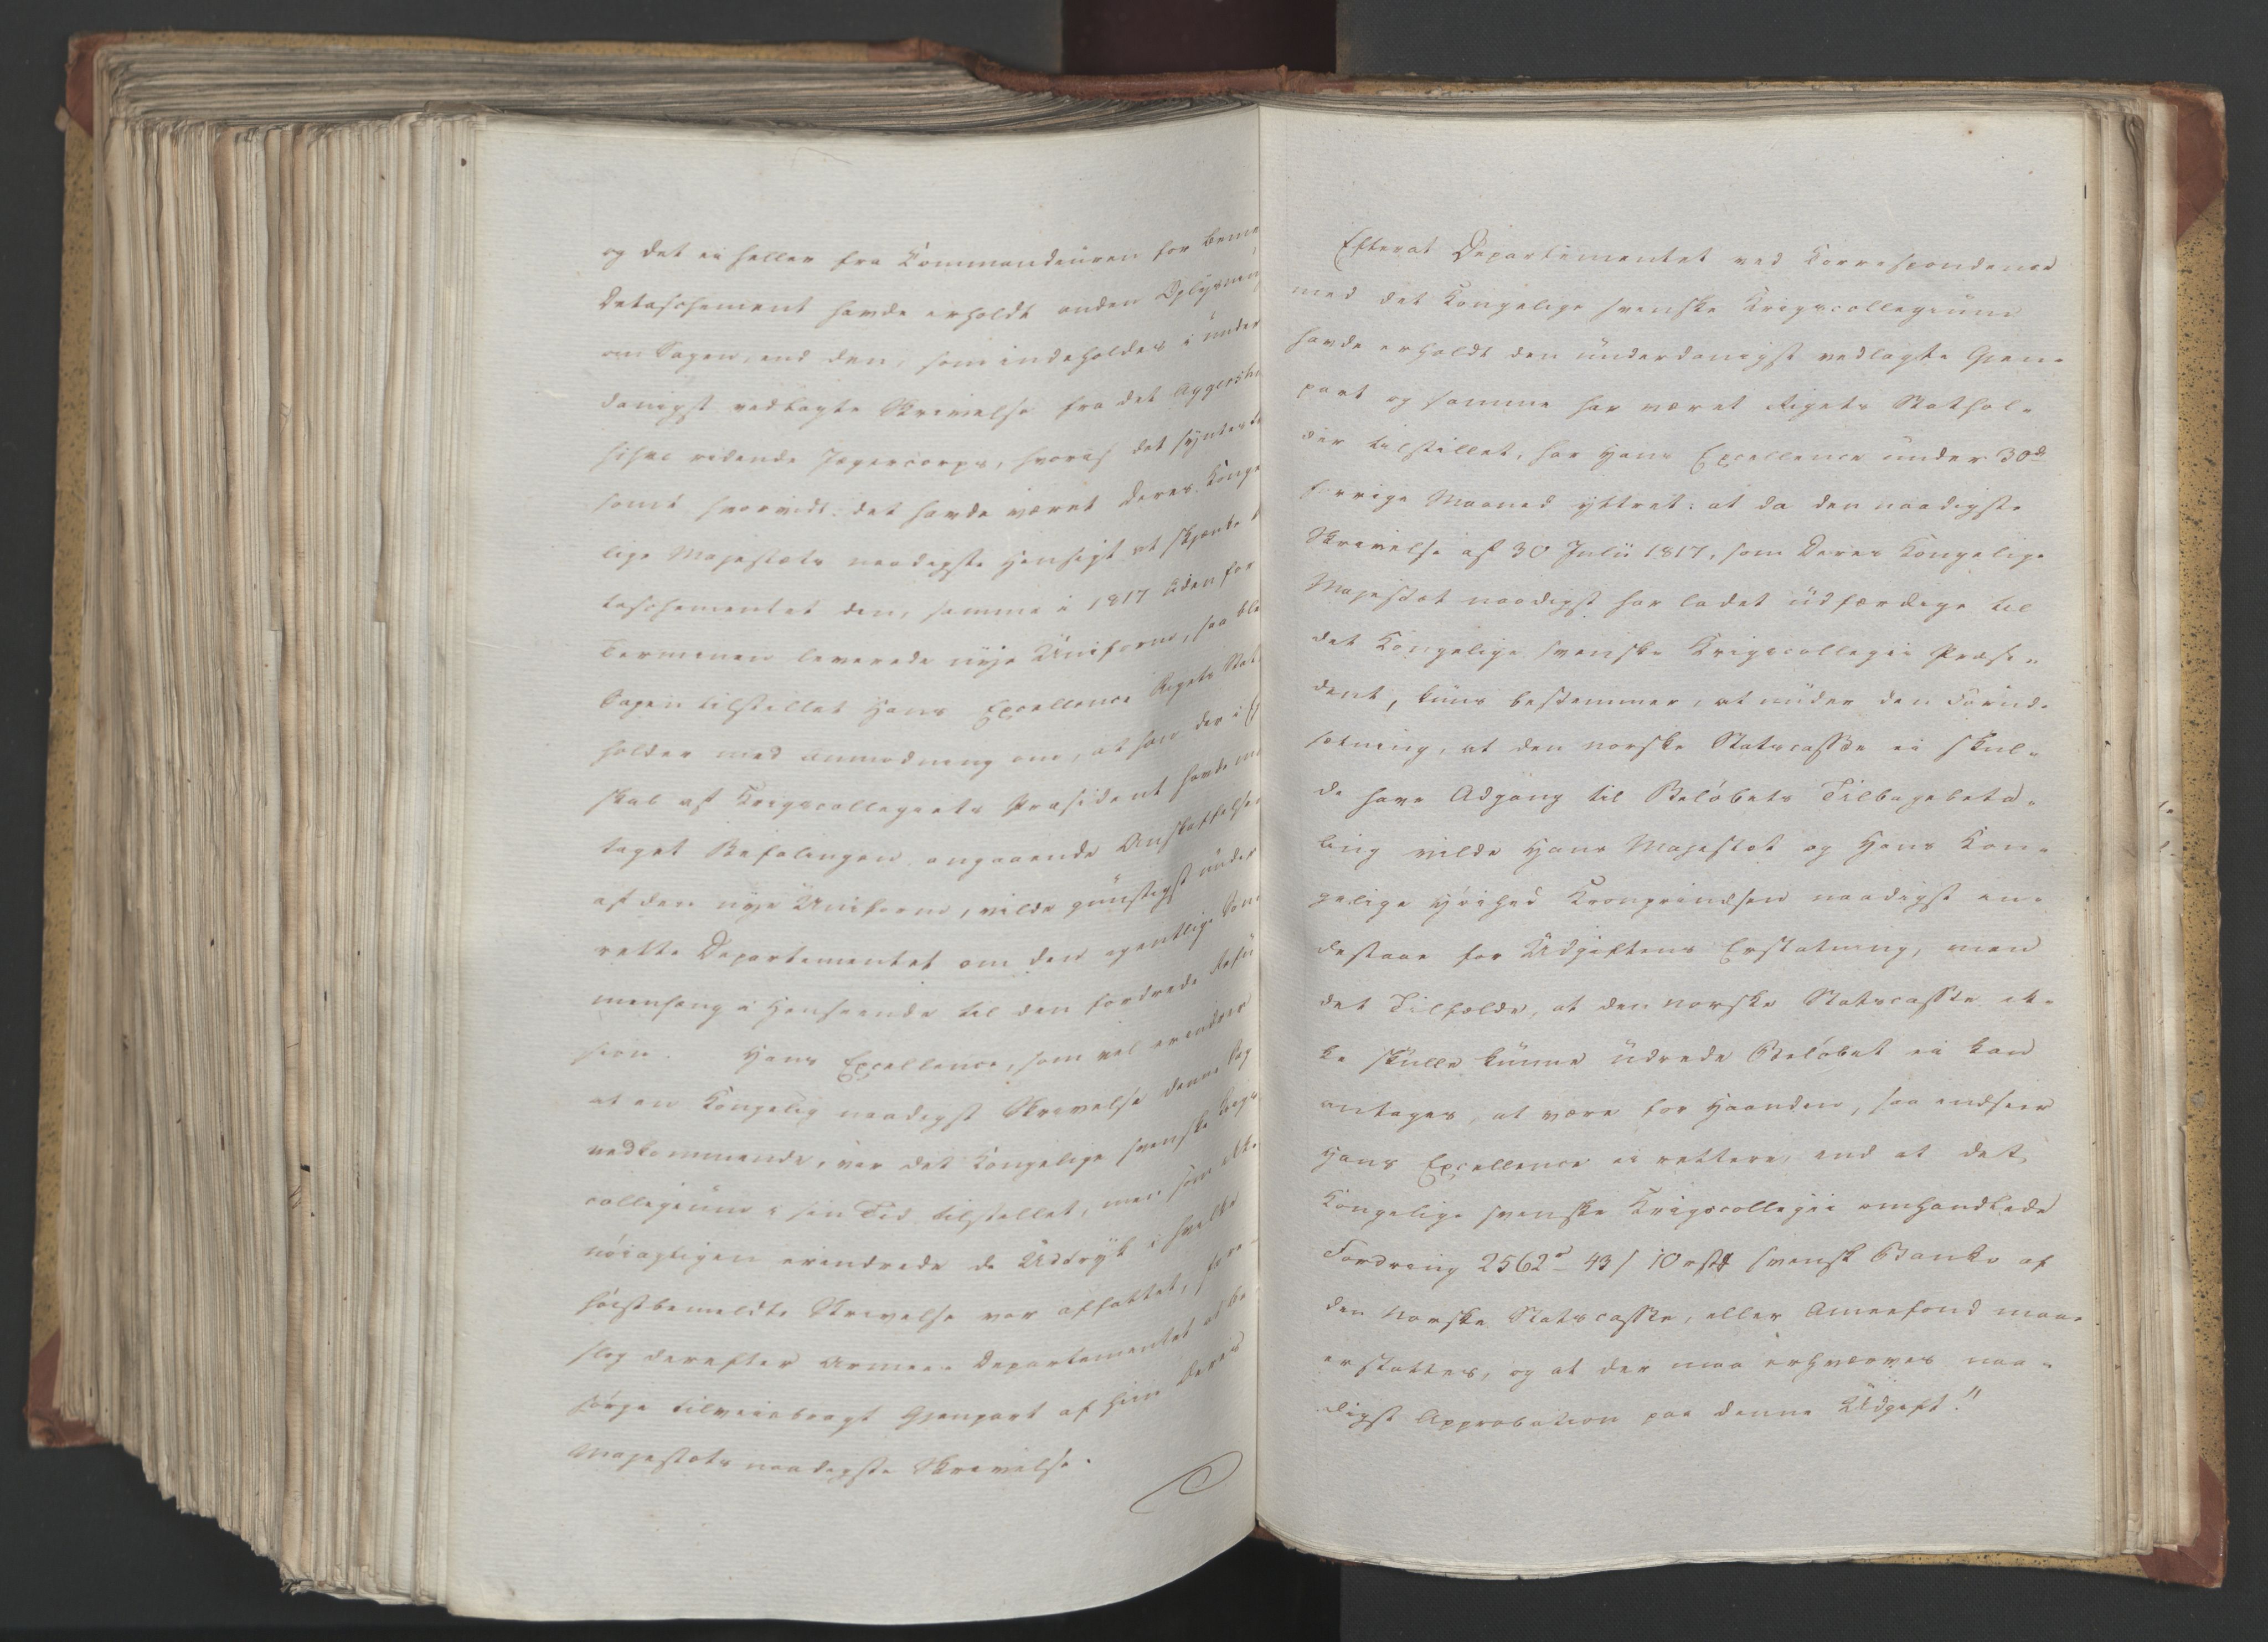 og det ei heller fra Commandeuren for bem
Detaschement havde erholdt anden Oplysning
om Sagen, end den, som indeholdes i under
danigst vedlagte Skrivelse fra det Aggersh
husske ridende Jægercorps, hvoraf det syntes
som hvorvidt det havde været Deres Konge
lige Majestæts naadigste Hensigt at skjenke
taschementet den, samme i 1817 uden for
Terminen leverede nye Uniform, saa ble
Sagen tilstillet Hans Excellence Rigets Stat
holder med Anmodning om, at han der i E
skab af Krigscollegiets Præsident havde mod
taget Befalingen angaaende Anskaffelsen
af den nye Uniform, vilde gunstigst under
rette Departementet om den egentlige Sam
menhæng i Henseende til den fordrede Refu
sion. Hans Excellence, som vel erindrer
at en Kongelig naadigst Skrivelse denne Sag
vedkommende, var det Kongelige svenske Krigs
collegium i sin Tid tilstillet, men som ikke
nöiagtigen erindrede de Udtryk i hvilke
höistbemeldte Skrivelse var affattet, fore-
slog derefter Armee-Departementet at be
sörge tilveiebragt Gjenpart af hiin Deres
Majestæts naadigste Skrivelse.
Efterat Departementet ved Correspondence
med det Kongelige svenske Krigscollegium
havde erholdt den underdanigst vedlagte Gjen-
part og samme har været Rigets Stathol-
der tilstillet, har Hans Excellence under 30de
forrige Maaned yttret: at da den naadigste
Skrivelse af 30 Julii 1817, som Deres Kongelige
Majestæt naadigst har ladet udfærdige til
det Kongelige svenske Krigscollegii Præsi-
dent, kuns bestemmer, at under den Forud-
sætning, at den norske Statscasse ei skul-
de have Adgang til Belöbets Tilbagebeta-
ling vilde Hans Majestæt og Hans Kon-
gelige Höihed Kronprindsen naadigst in-
destaae for Udgiftens Erstatning, men
det Tilfælde, at den norske Statscasse ik-
ke skulle kunne udrede Belöbet ei kan
antages, at være for Haanden, saa indseer
Hans Excellence ei rettere, end at det
Kongelige svenske Krigscollegii omhandlede
Fordring 2562 d 43 s 10 rst svensk Banko af
den norske Statscasse, eller Armeefond maae
erstattes, og at der maa erhverves naa-
digst Approbation paa denne Udgift."